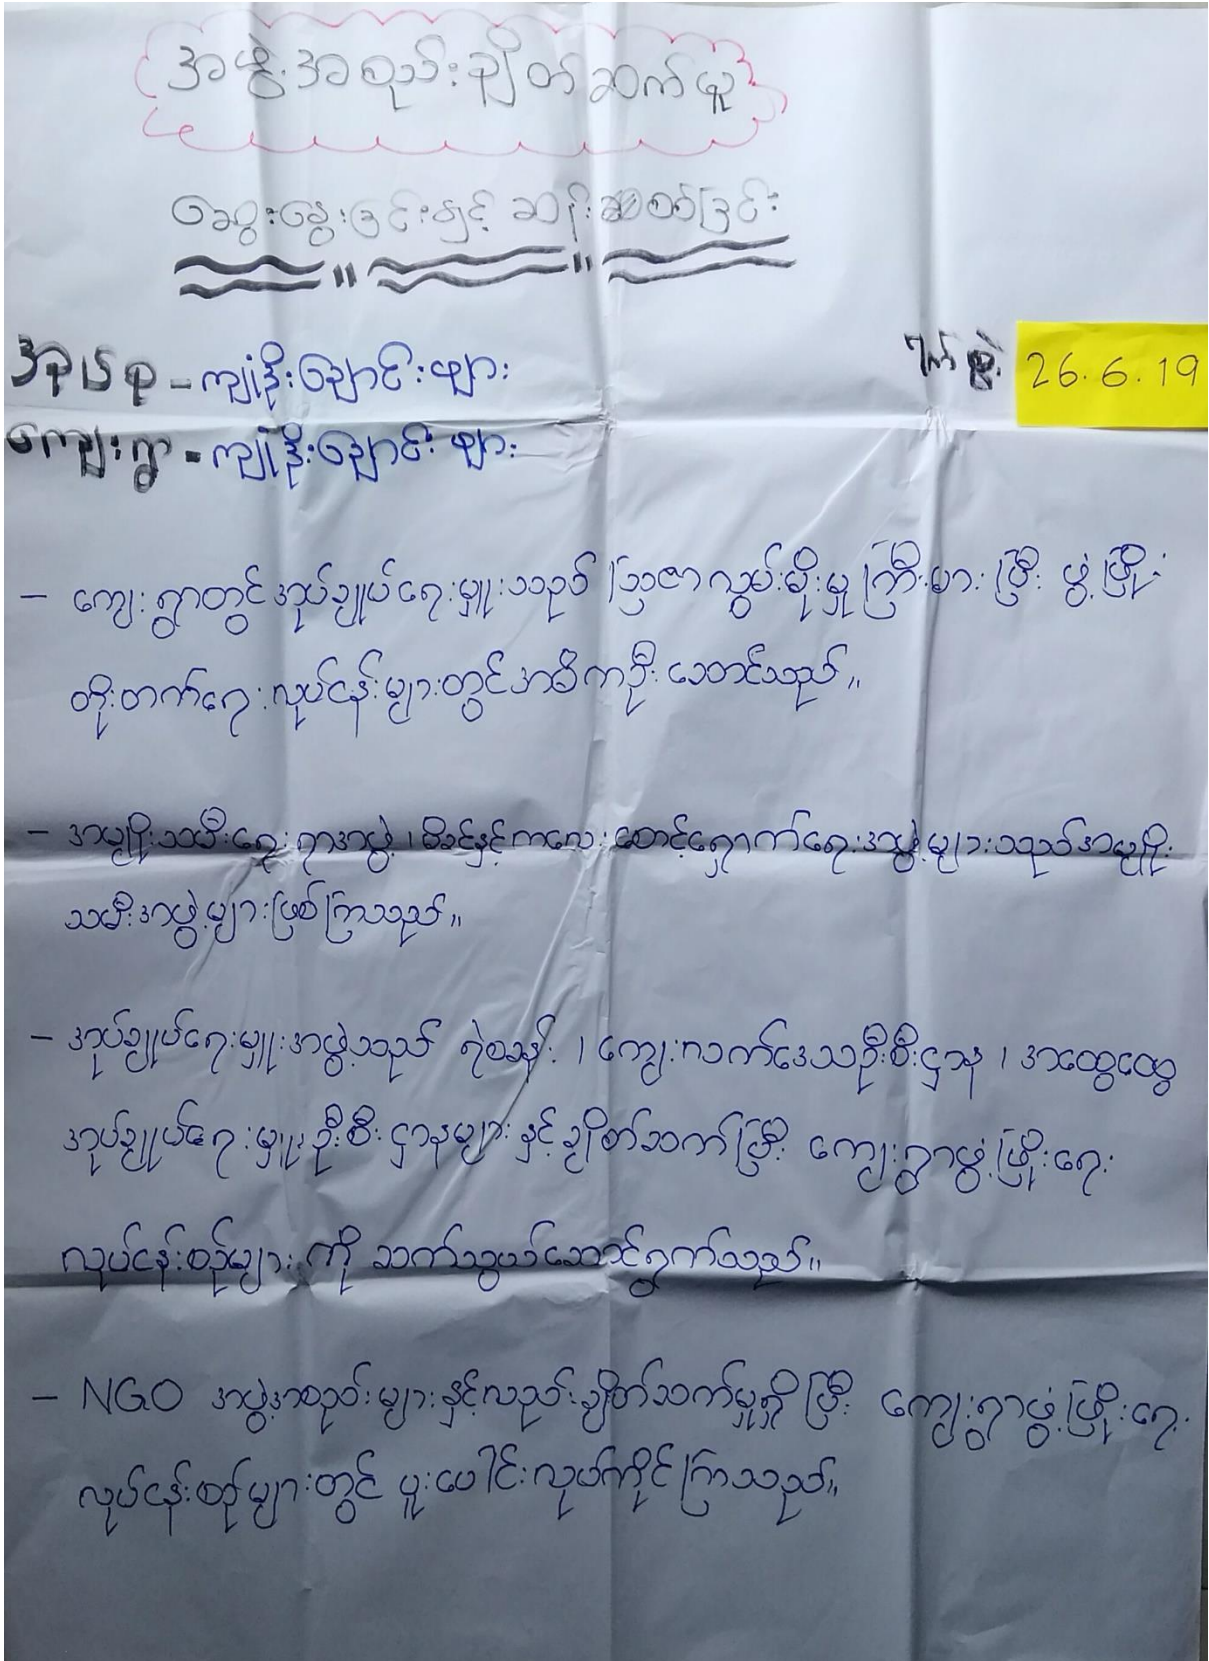 အဖွဲ့အစည်းချိတ်ဆက်မှု
ဆွေးနွေးခြင်းနှင့် ဆန်းစစ်ခြင်း
အုပ်စု - ကျုံဒိုးချောင်းဖျား
ရက်စွဲ 26.6.19
ကျေးရွာ - ကျုံဒိုးချောင်းဖျား
- ကျေးရွာတွင် အုပ်ချုပ်ရေးမှူးသည် ဩဇာလွှမ်းမိုးမှုကြီးမားပြီး ဖွံ့ဖြိုး
တိုးတက်ရေးလုပ်ငန်းများတွင် အဓိကဦးဆောင်သည်။
- အမျိုးသမီးရေးရာအဖွဲ့၊ မိခင်နှင့်ကလေးစောင့်ရှောက်ရေးအဖွဲ့များသည် အမျိုး
သမီးအဖွဲ့များဖြစ်ကြသည်။
- အုပ်ချုပ်ရေးမှူးအဖွဲ့သည် ရဲစခန်း၊ ကျေးလက်ဒေသဦးစီးဌာန၊ အထွေထွေ
အုပ်ချုပ်ရေးမှူးဦးစီးဌာနများနှင့် ချိတ်ဆက်ပြီး ကျေးရွာဖွံ့ဖြိုးရေး
လုပ်ငန်းစဉ်များကို ဆက်သွယ်ဆောင်ရွက်သည်။
- NGO အဖွဲ့အစည်းများနှင့်လည်းချိတ်ဆက်မှုရှိပြီး ကျေးရွာဖွံ့ဖြိုးရေး
လုပ်ငန်းစဉ်များတွင် ပူးပေါင်းလုပ်ကိုင်ကြသည်။